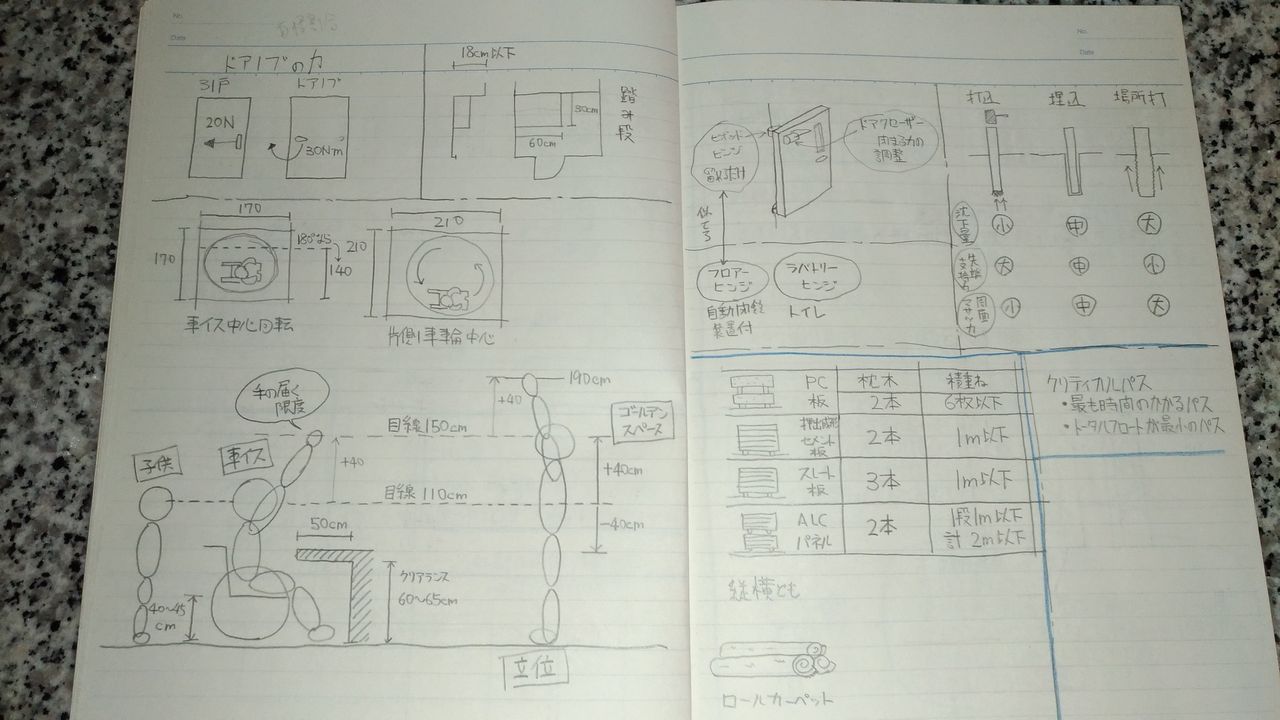 No.
Date
ドアノブの力
引戸
ドアノブ
20N
30N㎡
18cm以下
30cm
60cm
踏み段
170
170
180°なら
140
車イス中心回転
210
210
片側車輪中心
手の届く
限度
190cm
+40
目線150cm
ゴールデン
スペース
子供
車イス
+40
+40cm
目線110cm
50cm
-40cm
クリアランス
60~65cm
40~45
cm
立位
No.
Date
ピボット
ヒンジ
ドアクローザー
閉まる力の
調整
似てる
フロアー
ヒンジ
自動閉鎖
装置付
ラバトリー
ヒンジ
トイレ
打込
埋込
場所打
沈下量
小
中
大
先端
支持力
大
中
小
周面
マサツ力
小
中
大
PC
板
枕木
積重ね
2本
6枚以下
押出成形
セメント
板
2本
1m以下
スレート
板
3本
1m以下
ALC
パネル
2本
1段1m以下
計2m以下
クリティカルパス
・最も時間のかかるパス
・トータルフロートが最小のパス
縦横とも
ロールカーペット